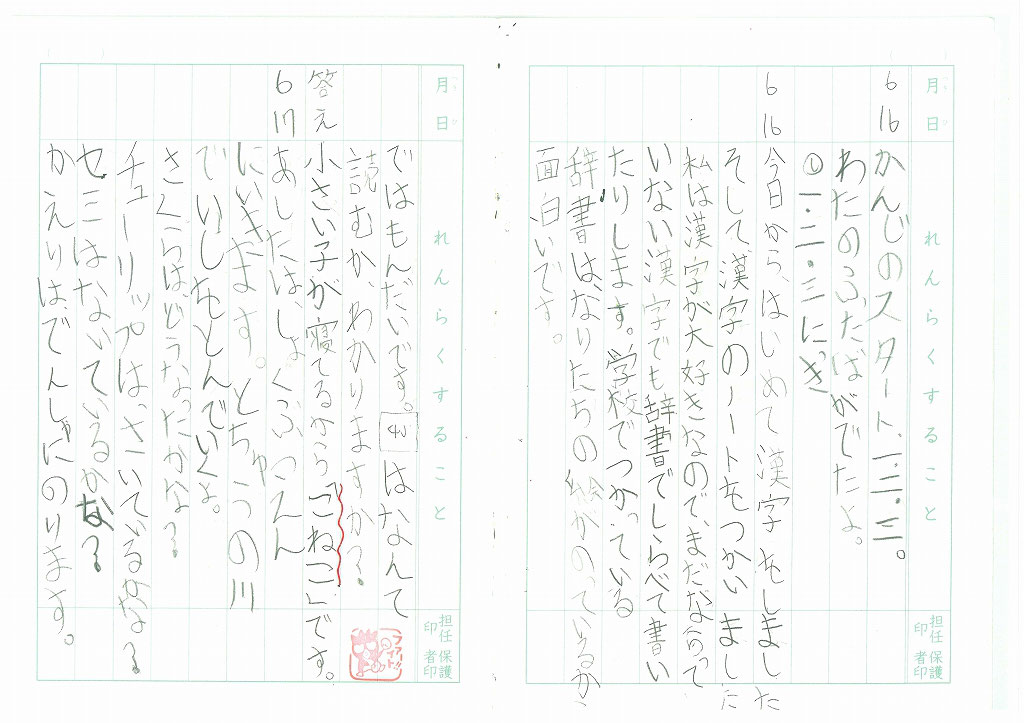 月日 れんらくすること 担任印 保護者印
6 16 かんじのスタート、一.二.三。
わたのふたばがでたよ。
①一・二・三にっき
6 16 今日から、はじめて漢字をしました
そして漢字のノートをつかいました
私は漢字が大好きなので、まだならって
いない漢字でも辞書でしらべて書い
たりします。学校でつかっている
辞書は、なりたちの絵がのっているから
面白いです。
月日 れんらくすること 担任印 保護者印
ではもんだいです。はなんて
読むか、わかりますか?
答え 小さい子が寝てるから「こねこ」です。
6 17 あしたは、しょくぶつえん
にいきます。とちゅうの川
でいしをとんでいくよ。
さくらは、どうなったかな?
チューリップは、さいているかな?
セミはないているかな?
かえりは、でんしゃにのります。
ファイト!!